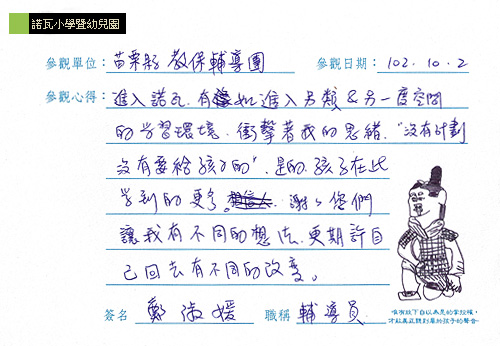 諾瓦小學暨幼兒園
參觀單位：苗栗縣 教保輔導團 參觀日期：102.10.2
參觀心得：進入諾瓦，有如進入另類&另一度空間
的学習環境，衝擊著我的思緒，"沒有計劃
沒有要給孩子的"，是的，孩子在此
学到的更多。謝謝您們
讓我有不同的想法，更期許自
己回去有不同的改變。
唯有放下自以為是的掌控權，
才能真正聽到屬於孩子的聲音
簽名 鄭淑媛 職稱 輔導員